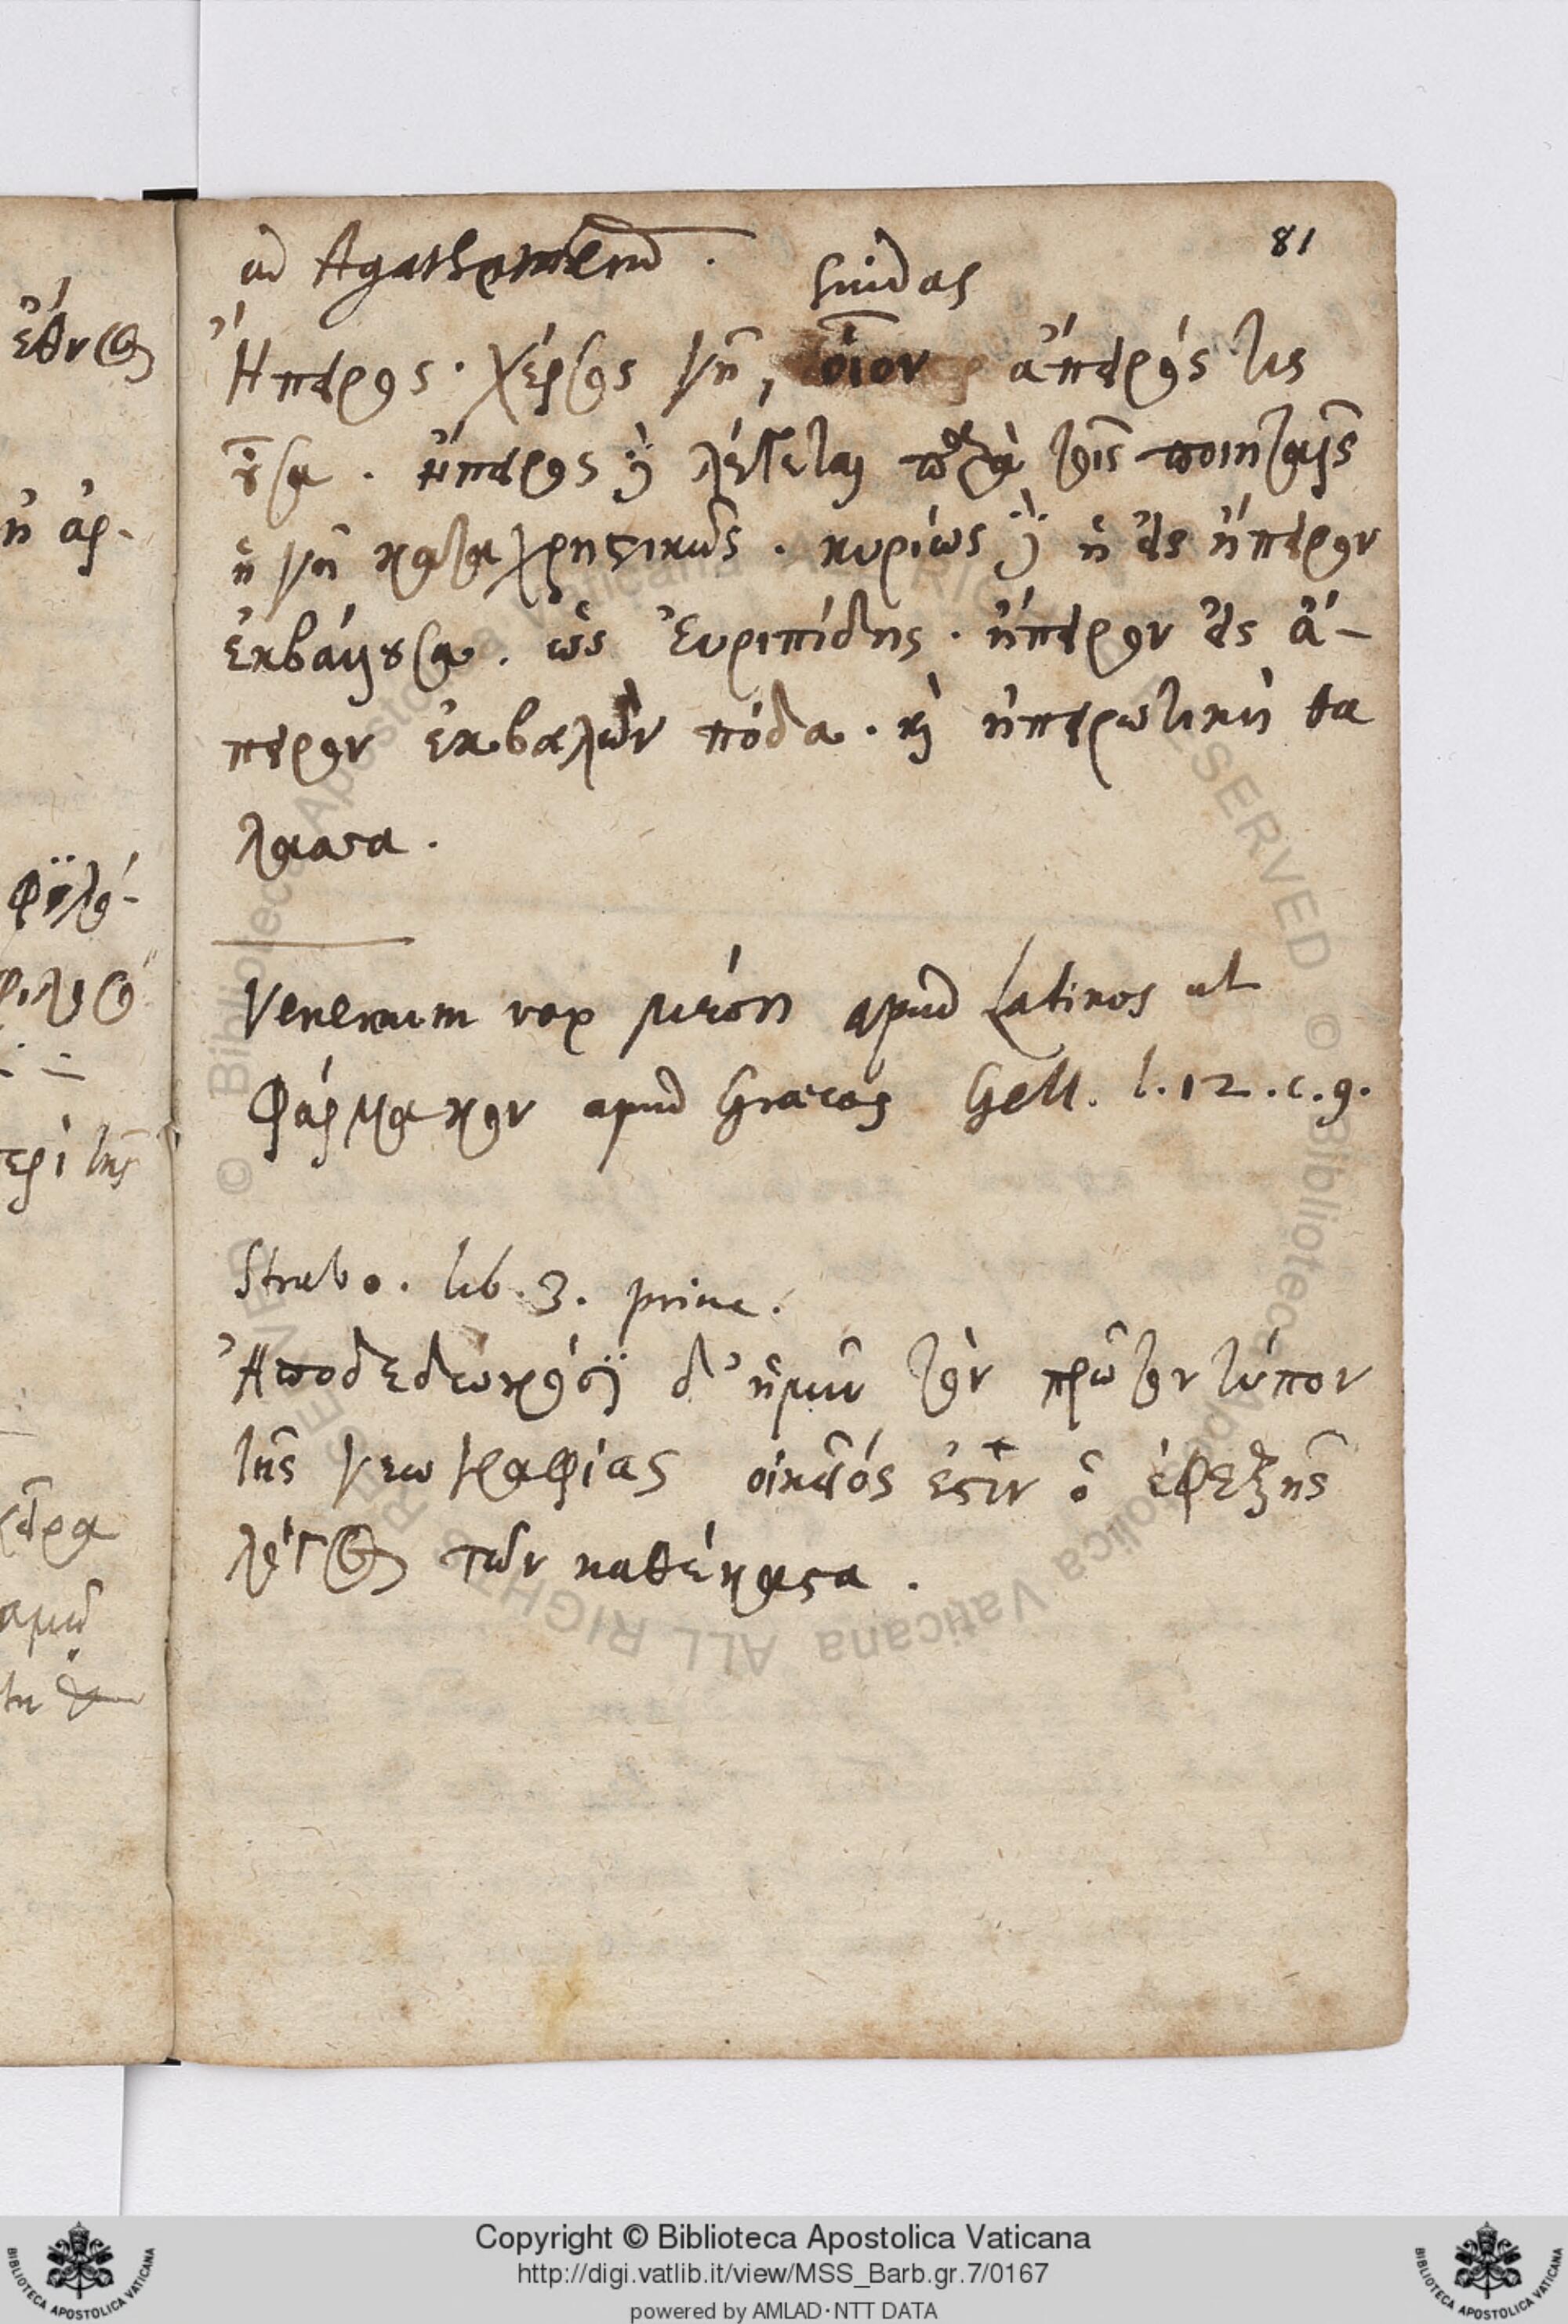 81
ad Agathemerum.
Suidas
Ἤπειρος. χέρσος γῆ, οἷον ἄπειρός τις
οὖσα. ἤπειρος δὲ λέγεται παρὰ τοῖς ποιηταῖς
ἡ γῆ καταχρηστικῶς. κυρίως δὲ ἡ εἰς ἤπειρον
ἐκβαίνουσα. ὡς Ἐυριπίδης. ἤπειρον εἰς ἄ-
πειρον ἐκβαλὼν πόδα. καὶ ἠπειρωτικὴ θα
λασσα.
Venenum vox μέση apud Latinos ut
φάρμακον apud Græcos Gell. l. 12. c. 9.
Strabo. lib. 3. princ.
Ἀποδεδωκόσι δ' ἡμῖν τὸν πρῶτον τύπον
τῆς γεωγραφίας οἰκεῖός ἐστιν ὁ ἐφεξῆς
λόγος τῶν καθέκαστα.
ἔθνος
ἢ ἀρ-
Copyright © Biblioteca Apostolica Vaticana
http://digi.vatlib.it/view/MSS_Barb.gr.7/0167
powered by AMLAD·NTT DATA
BIBLIOTECA APOSTOLICA VATICANA
BIBLIOTECA APOSTOLICA VATICANA